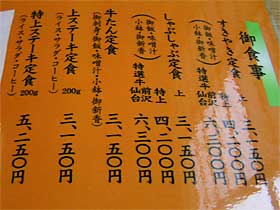 御食事
すきやき定食 上 三、一五〇円
(御飯・味噌汁・小鉢・御新香)
特上 四、二〇〇円
特選牛 前沢 仙台 六、二〇〇円
しゃぶしゃぶ定食 上 三、一五〇円
(御飯・味噌汁・小鉢・御新香)
特上 四、二〇〇円
特選牛 前沢 仙台 六、二〇〇円
牛たん定食 三、一五〇円
(御飯・味噌汁・小鉢・御新香)
上ステーキ定食 200g 三、一五〇円
(ライス・サラダ・コーヒー)
特上ステーキ定食 200g 五、二五〇円
(ライス・サラダ・コーヒー)